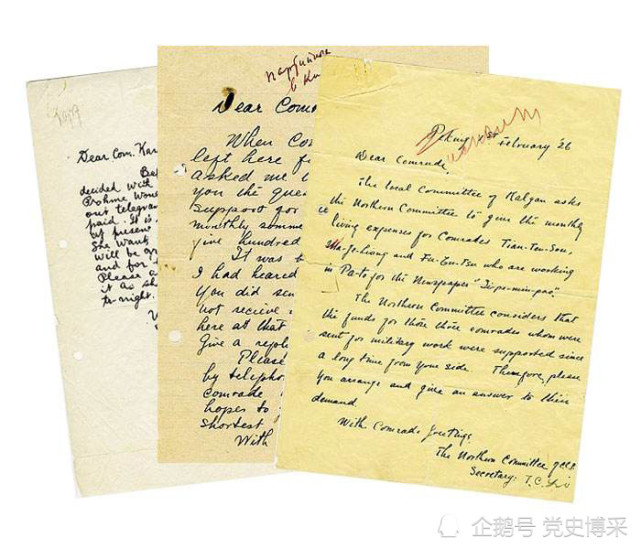 Dear Com. Kar
decided with
out telegram
paid. It is
at present
She want
will be
and for
Please
it as
to-night.
Dear Com
When Co
left here f
asked me
you the que
support for
monthly somme
five hundred
It was t
I had heared
You did sen
not recieve
here at that
Give a repl
Please
by teleph
comrade
hopes to
shortest
With
February 26
Dear Comrade,
The local Committee of Kalgan asks
the Northern Committee to give the monthly
living expenses for Comrades
and who are working
in Pa-to for the Newspaper "Si-pe-min-pao".
The Northern Committee considers that
the funds for those three comrades whom were
sent for military work were supported since
a long time from your side. Therefore, please
you arrange and give an answer to their
demand.
With Comrade Greetings.
The Northern Committee of CCP
Secretary: T.C.
企鹅号 党史博采